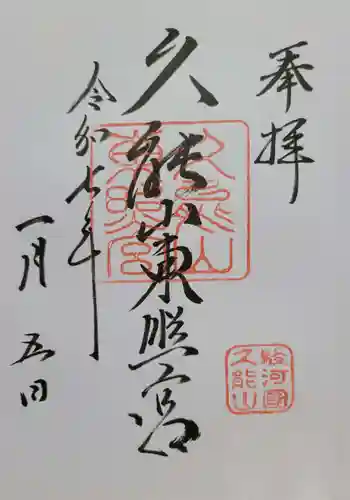 奉拝
久能山東照宮
令和七年
一月五日
久能山東照宮
駿河國
久能山